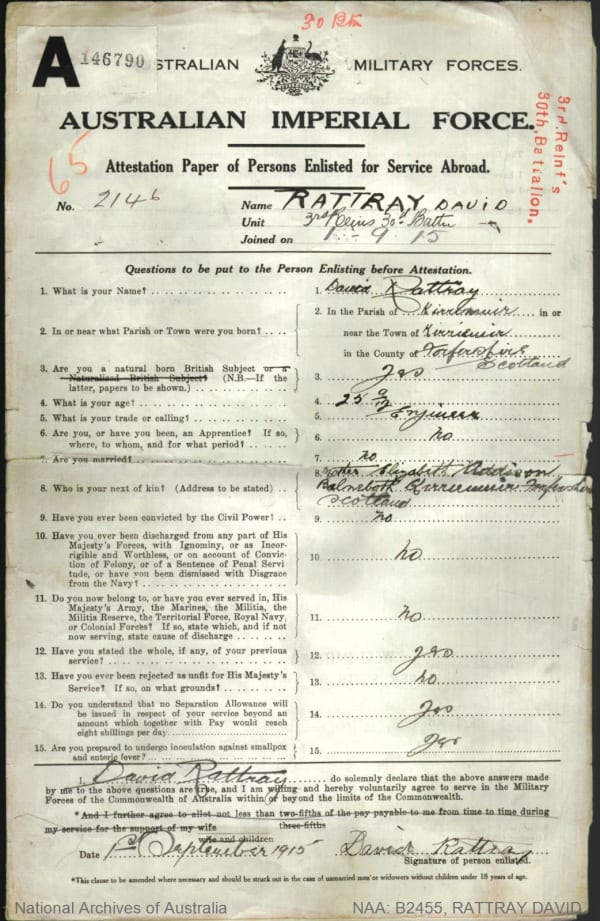 30 Btn
A 146790
AUSTRALIAN MILITARY FORCES.
AUSTRALIAN IMPERIAL FORCE.
3rd. Reinf's
30th. Battalion.
65
Attestation Paper of Persons Enlisted for Service Abroad.
No. 2146
Name RATTRAY DAVID
Unit 3rd Reins 30th Battn
Joined on 1 - 9 15
Questions to be put to the Person Enlisting before Attestation.
1. What is your Name? 1. David Rattray
2. In or near what Parish or Town were you born? 2. In the Parish of Kirriemuir in or
near the Town of Kirriemuir
in the County of Forfarshire
Scotland
3. Are you a natural born British Subject or a
Naturalised British Subject? (N.B.—If the
latter, papers to be shown.) 3. Yes
4. What is your age? 4. 25 9/12
5. What is your trade or calling? 5. Engineer
6. Are you, or have you been, an Apprentice? If so,
where, to whom, and for what period? 6. no
7. Are you married? 7. no
8. Who is your next of kin? (Address to be stated) 8. Mother Elizabeth Addison
Balnaboth Kirriemuir Forfarshire
Scotland
9. Have you ever been convicted by the Civil Power? 9. no
10. Have you ever been discharged from any part of His
Majesty's Forces, with Ignominy, or as Incor-
rigible and Worthless, or on account of Convic-
tion of Felony, or of a Sentence of Penal Servi
tude, or have you been dismissed with Disgrace
from the Navy? 10. no
11. Do you now belong to, or have you ever served in, His
Majesty's Army, the Marines, the Militia, the
Militia Reserve, the Territorial Force, Royal Navy,
or Colonial Forces? If so, state which, and if not
now serving, state cause of discharge 11. no
12. Have you stated the whole, if any, of your previous
service? 12. yes
13. Have you ever been rejected as unfit for His Majesty's
Service? If so, on what grounds? 13. no
14. Do you understand that no Separation Allowance will
be issued in respect of your service beyond an
amount which together with Pay would reach
eight shillings per day 14. yes
15. Are you prepared to undergo inoculation against smallpox
and enteric fever? 15. yes
I, David Rattray do solemnly declare that the above answers made
by me to the above questions are true, and I am willing and hereby voluntarily agree to serve in the Military
Forces of the Commonwealth of Australia within or beyond the limits of the Commonwealth.
*And I further agree to allot not less than two-fifths of the pay payable to me from time to time during
three-fifths
my service for the support of my wife
wife and children
Date 1st September 1915 David Rattray
Signature of person enlisted.
*This clause to be amended where necessary and should be struck out in the case of unmarried men or widowers without children under 18 years of age.
National Archives of Australia NAA: B2455, RATTRAY DAVID